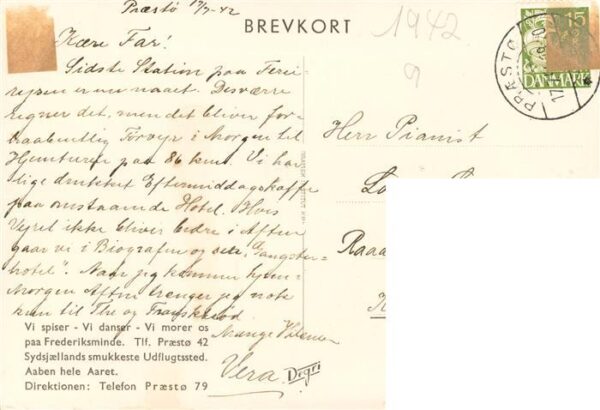 Præstø 17/7-42
BREVKORT
1942
9
Kære Far!
Sidste Station paa Ferie-
rejsen er nu naaet. Desværre
regner det, men det bliver for-
haabentlig Tørvejr i Morgen til
Hjemturen paa 86 km. Vi har
lige drukket Eftermiddagskaffe
paa omstaaende Hotel. Hvis
Vejret ikke bliver bedre i Aften
gaar vi i Biografen og ser „Gangster-
hotel". Naar jeg kommer hjem
Morgen Aften trænger jeg nok
kun til The og Franskbrød.
Mange Hilsener
Vera.
Vi spiser - Vi danser - Vi morer os
paa Frederiksminde. Tlf. Præstø 42
Sydsjællands smukkeste Udflugtssted.
Aaben hele Aaret.
Direktionen: Telefon Præstø 79
15
DANMARK
PRÆSTØ
17
Herr Pianist